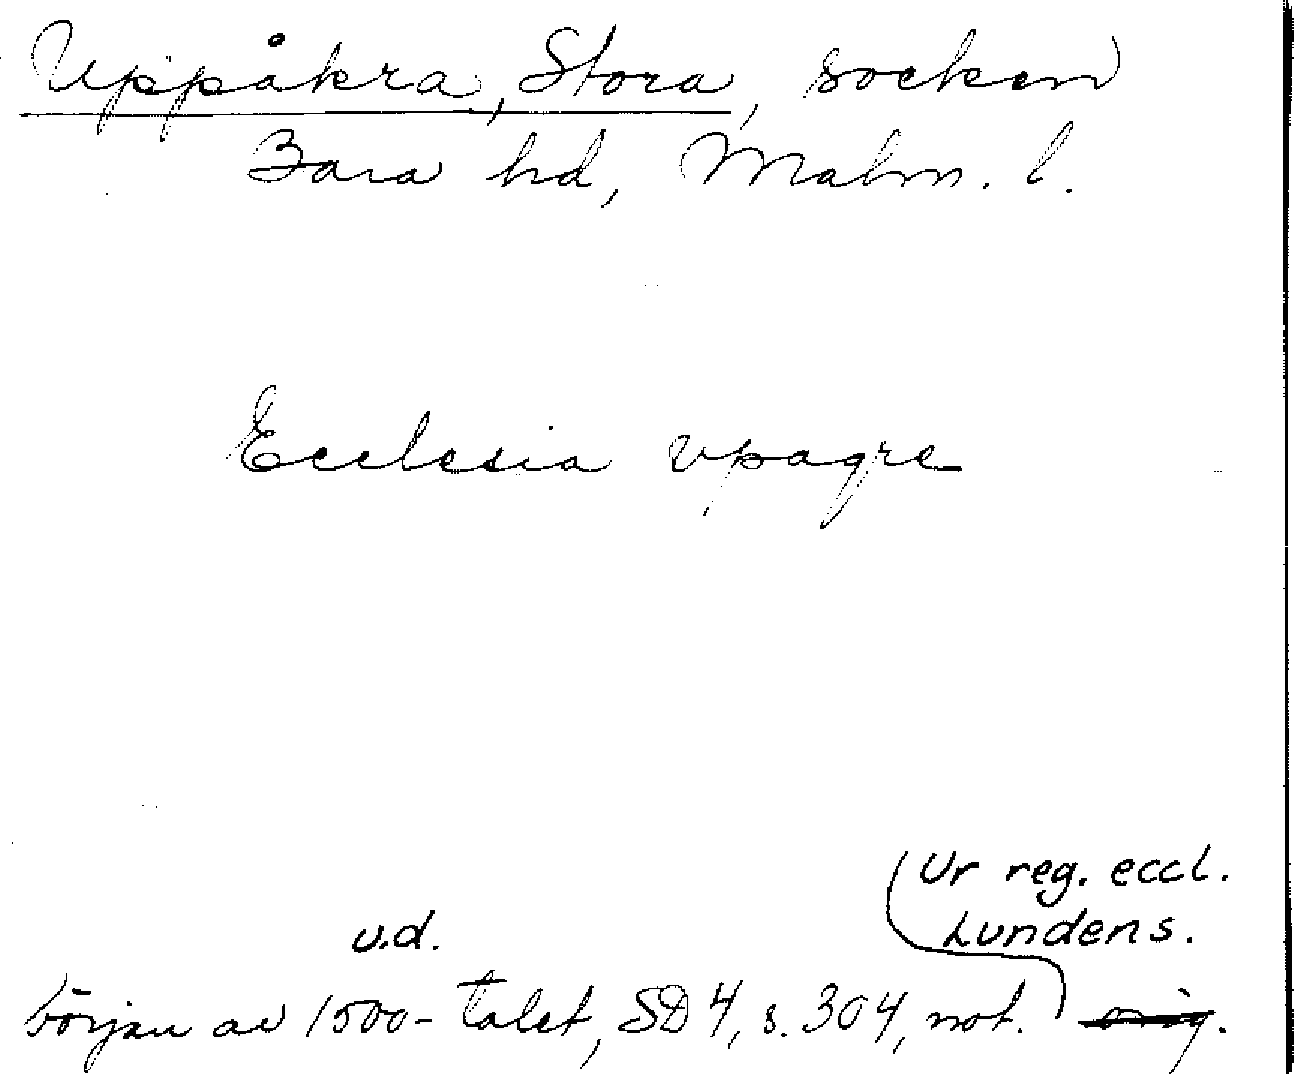 Uppåkra, Stora, socken
Bara hd, Malm. l.
Ecclesia vpagre
Ur reg. eccl.
Lundens.
u.d.
början av 1500-talet, SD 4, s. 304, not. orig.